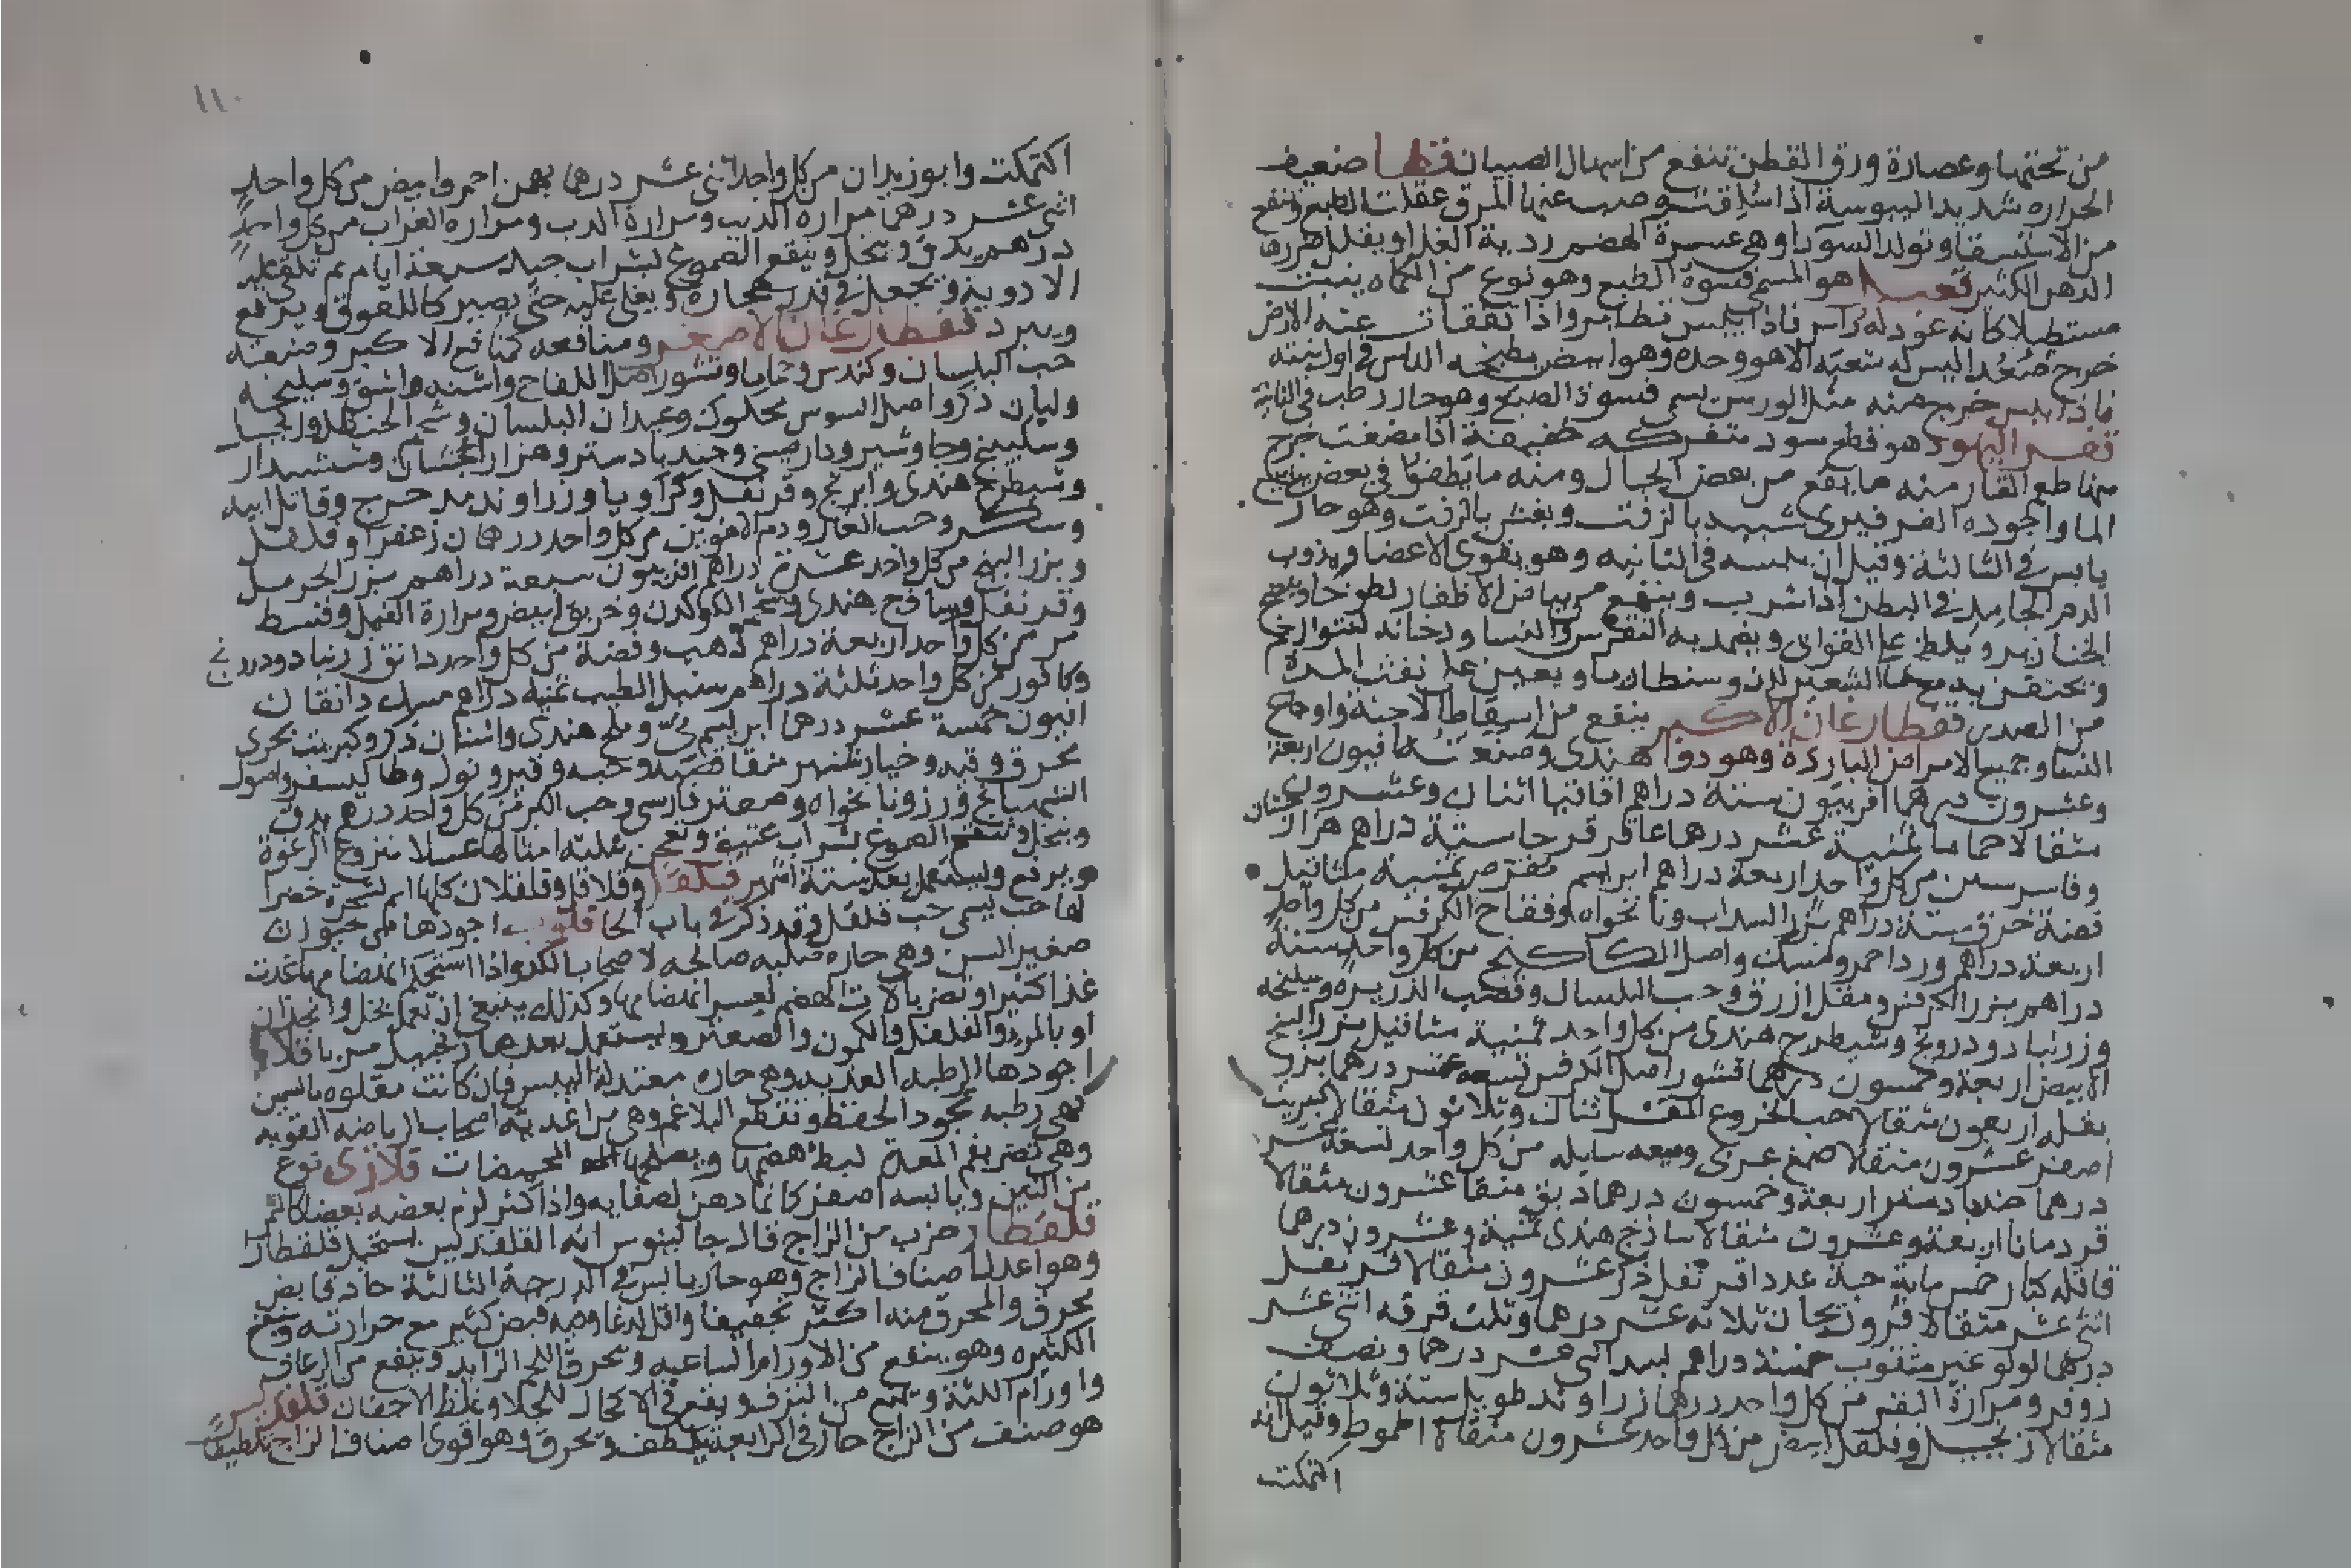 من تحتها وعصارة ورق القطن تنفع من اسهال الصبيان قطا ضعيف
الحراره شديد اليبوسة اذا سلقت وصب عنها المرق عقلت الطبع وتنفع
من الاستسقا وتولد السودا وهى عسرة الهضم ردية الغذا ويقلل ضررها
الدهن الكثير هو المسمى فسوة الضبع وهو نوع من الكماه ينبت
مستطيلا كانه عود له راس فاذا يبس تطاير واذا تفقات عنه الارض
خرج صعدا ليس له شعبه الا هو وحده وهو ابيض يطبخه الناس فى اول نبته
فاذا يبس خرج منه مثل الورس يسمى فسوة الضبع وهو حار رطب فى الثانية
قفر اليهود هو قطع سود متفركه خفيفة اذا مضغت خرج
منها طعم القار منه ما يقع من بعض الجبال ومنه ما يطفوا فى بعض
الما واجوده الفرفيرى شبيه بالزفت ويغش بالزفت وهو حار
يابس فى الثالثة وقيل ان يبسه فى الثانيه وهو يقوى الاعضا ويذوب
الدم الجامد فى البطن اذا شرب وينفع من بياض الاظفار لطوخا وينضج
الخنازير ويلطخ على القوابى ويضمد به النقرس والنسا ودخانه لنتو الرحم
ويحتقن به مع ما الشعير لدوسنطاريا ويعين على نفث المدة
من الصدر قفطارغان الاكبر ينفع من اسقاط الاجنة واوجاع
النسا وجميع الامراض الباردة وهو دوا هندى وصنعته افيون اربعة
وعشرون درهما افربيون ستة دراهم اقاقيا اثنان وعشرون
مثقالا حماما ثمنية عشر درهما عاقر قرحا ستة دراهم هزار جشان
وفاسرسين من كل واحد اربعة دراهم ابريسم مقرض ثمنية مثاقيل
فضة خرق ستة دراهم بزر السداب ونانخواه وفقاح الكرفس من كل واحد
اربعة دراهم ورد احمر ومسك واصل الكاكنج من كل واحد ستة
دراهم بزر الكرفس ومقل ازرق وحب البلسان وقصب الذريره وسليخه
وزرنباد ودرونج وشيطرج هندى من كل واحد ثمنية مثاقيل بزر البنج
الابيض اربعة وخمسون درهما قشور اصل الكرفس تسعه عشر درهما بزر
بقله اربعون مثقالا حب الخروع المقشر اثنان وثلاثون مثقالا كبريت
اصفر عشرون مثقالا صمغ عربى وميعه سايله من كل واحد تسعة عشر
درهما جندبادستر اربعة وخمسون درهما دبق منقا عشرون مثقالا
قردمانا اربعة وعشرون مثقالا ساذج هندى ثمنية وعشرون درهما
قاقله كبار خمس ماية حبة عددا قرنفل ذكر عشرون مثقالا قرنفل
اثنى عشر مثقالا ثلاثة عشر درهما وثلث قرفه اثنى عشر
درهما لولو غير مثقوب خمسة دراهم بسد اثنى عشر درهما ونصف
زوفر ومرارة البقر من كل واحد درهما زراوند طويل ستة وثلاثون
مثقالا زنجبيل وفلفل ابيض من كل واحد عشرون مثقالا اطموط وقيل انه
اكتمكت
١١٠
اكتمكت وابوزيدان من كل واحد اثنى عشر درهما بهمن احمر وابيض من كل واحد
اثنى عشر درهما مراره الذيب ومرارة الدب ومراره الغراب من كل واحد
درهم يدق وينخل وينقع الصموغ بشراب جيد سبعة ايام ثم تلقى عليه
الادوية وتجعل فى قدر حجارة ويغلى عليه حتى يصير كاللعوق ويرفع
ويبرد قفطارغان الاصغر ومنافعه كمنافع الاكبر وصنعته
حب البلسان وكندس وحماما وقشور اصل اللفاح واشنه واشق وسليخه
ولبان ذكر واصل السوس محكوك وعيدان البلسان وشحم الحنظل
وسكبينج وجاوشير ودارصينى وجندبادستر وهزار جشان وششبدار
وشيطرج هندى وابرنج وقرنفل وكراويا وزراوند مدحرج وقاتل ابيه
وسكر وحب الغار ودم الاخوين من كل واحد درهمان زعفران وفلفل
وبزر البنج من كل واحد عشرة دراهم افربيون سبعة دراهم بزر الحرمل
وقرنفل وساذج هندى وشحم الكركدن وخربق ابيض ومرارة الفيل وقسط
مر من كل واحد اربعة دراهم ذهب وفضة من كل واحد دانق زرنباد ودرونج
وكافور من كل واحد ثلثة دراهم سنبل الطيب ثمنيه دراهم مسك دانقان
افيون خمسة عشر درهما ابريسم نى وملح هندى واشنان ذكر وكبريت بحرى
محرق وقنه وخيار شنبر منقا قصبه وحبه وقير ونول وطاليسفر واصول
الشهبانج وزرونانخواه وصعتر فارسى وحب الكبر من كل واحد درهم يدق
وينخل وينقع الصموغ بشراب عتيق وتعجن بثلثه امثالها عسلا منزوع الرغوة
ويرفع ويستعمل بعد ستة اشهر قلقل وقلاقل وقلقلان كلها اسم لشجرة خضرا
لها حب يسمى حب قلقل وقد ذكر فى باب الحا قلوب اجودها من حيوان
صغير السن وهى حاره صلبه صالحه لاصحاب الكد واذا استحكم انهضامها غذت
غذا كثيرا وتضر بالات الهضم لعسر انهضامها وكذلك ينبغى ان تعمل بخل وانجدان
او بالمرى والفلفل والكمون والصعتر ويستعمل بعدها زنجبيل مربا قلايا
اجودها الرطبه العذبه وهى حاره معتدلة اليبس فان كانت مقلوه بالسمن
فهى رطبه تجود الحفظ وتقطع البلاغم وهى من اغذية اصحاب الرياضه القويه
وهى تضر بفم المعدة لبطء هضمها ويصلحها الحميضات قلازى نوع
من التين ويابسه اصفر كانما دهن لصفايه واذا كثر لزم بعضه بعضا كالتمر
قلقطار ضرب من الزاج قال جالينوس انه القلقديس يستحيل قلقطارا
وهو اعدل اصناف الزاج وهو حار يابس فى الدرجة الثالثة حاد قابض
محرق والمحرق منه اكثر تجفيفا واقل لدغا وفيه قبض كثير مع حرارته وينفع
الكثيره وهو ينفع من الاورام الساعيه وتحرق اللحم الزايد وينفع من الرعاف
واورام اللثة ويمنع من النزف ويقع فى الاكحال للجلا وغلظ الاجفان قلقديس
هو صنف من الزاج حار فى الرابعة يلطف ويحرق وهو اقوى اصناف الزاج تلطيفا